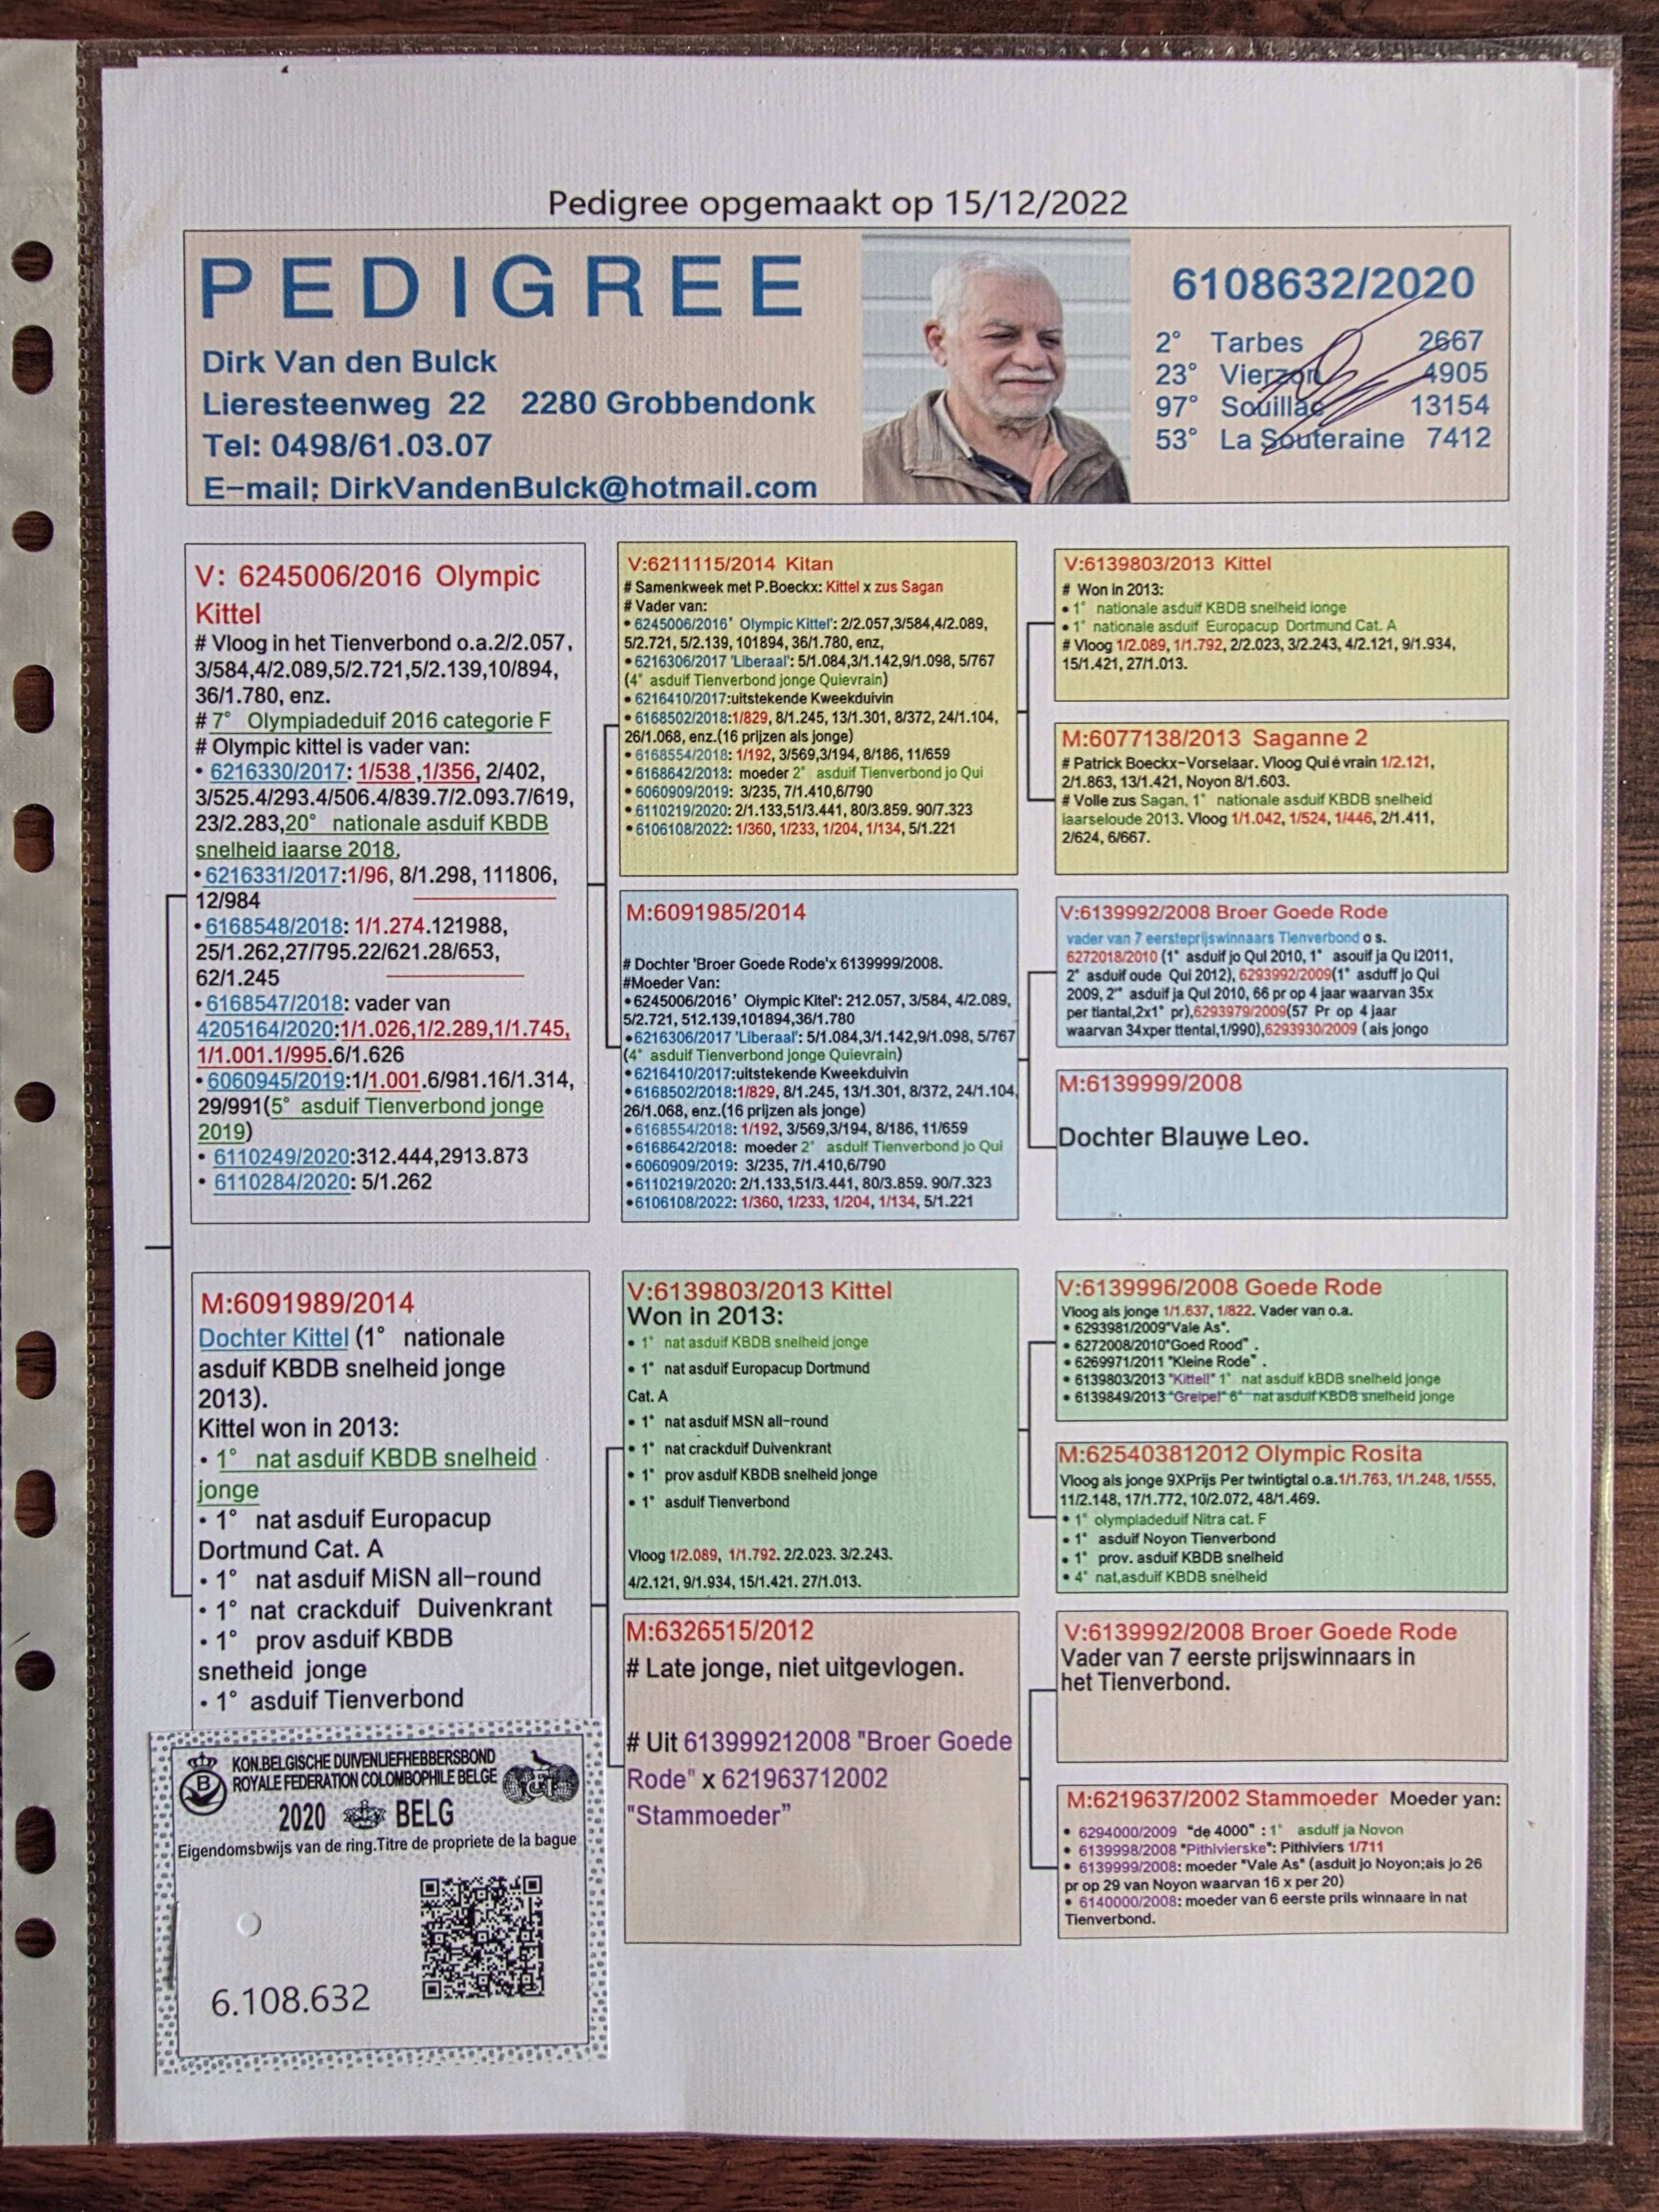 Pedigree opgemaakt op 15/12/2022
PEDIGREE
Dirk Van den Bulck
Lieresteenweg 22 2280 Grobbendonk
Tel: 0498/61.03.07
E-mail; DirkVandenBulck@hotmail.com
6108632/2020
2° Tarbes 2667
23° Vierzon 4905
97° Souillac 13154
53° La Souteraine 7412
V: 6245006/2016 Olympic
Kittel
# Vloog in het Tienverbond o.a.2/2.057,
3/584,4/2.089,5/2.721,5/2.139,10/894,
36/1.780, enz.
# 7° Olympiadeduif 2016 categorie F
# Olympic kittel is vader van:
• 6216330/2017: 1/538 ,1/356, 2/402,
3/525.4/293.4/506.4/839.7/2.093.7/619,
23/2.283,20° nationale asduif KBDB
snelheid iaarse 2018,
•6216331/2017:1/96, 8/1.298, 111806,
12/984
•6168548/2018: 1/1.274.121988,
25/1.262,27/795.22/621.28/653,
62/1.245
•6168547/2018: vader van
4205164/2020:1/1.026,1/2.289,1/1.745,
1/1.001.1/995.6/1.626
•6060945/2019:1/1.001.6/981.16/1.314,
29/991(5° asduif Tienverbond jonge
2019)
• 6110249/2020:312.444,2913.873
• 6110284/2020: 5/1.262
V:6211115/2014 Kitan
# Samenkweek met P.Boeckx: Kittel x zus Sagan
# Vader van:
• 6245006/2016' Olympic Kittel': 2/2.057,3/584,4/2.089,
5/2.721, 5/2.139, 101894, 36/1.780, enz,
•6216306/2017 'Liberaal': 5/1.084,3/1.142,9/1.098, 5/767
(4° asduif Tienverbond jonge Quievrain)
• 6216410/2017:uitstekende Kweekduivin
• 6168502/2018:1/829, 8/1.245, 13/1.301, 8/372, 24/1.104,
26/1.068, enz.(16 prijzen als jonge)
•6168554/2018: 1/192, 3/569,3/194, 8/186, 11/659
•6168642/2018: moeder 2° asduif Tienverbond jo Qui
•6060909/2019: 3/235, 7/1.410,6/790
•6110219/2020: 2/1.133,51/3.441, 80/3.859. 90/7.323
•6106108/2022: 1/360, 1/233, 1/204, 1/134, 5/1.221
V:6139803/2013 Kittel
# Won in 2013:
• 1° nationale asduif KBDB snelheid ionge
• 1° nationale asduif Europacup Dortmund Cat. A
# Vloog 1/2.089, 1/1.792, 2/2.023, 3/2.243, 4/2.121, 9/1.934,
15/1.421, 27/1.013.
M:6077138/2013 Saganne 2
# Patrick Boeckx-Vorselaar. Vloog Qui é vrain 1/2.121,
2/1.863, 13/1.421, Noyon 8/1.603.
# Volle zus Sagan, 1° nationale asduif KBDB snelheid
iaarseloude 2013. Vloog 1/1.042, 1/524, 1/446, 2/1.411,
2/624, 6/667.
M:6091985/2014
# Dochter 'Broer Goede Rode'x 6139999/2008.
#Moeder Van:
•6245006/2016' Olympic Kitel': 212.057, 3/584, 4/2.089,
5/2.721, 512.139,101894,36/1.780
•6216306/2017 'Liberaal': 5/1.084,3/1.142,9/1.098, 5/767
(4° asduif Tienverbond jonge Quievrain)
•6216410/2017:uitstekende Kweekduivin
•6168502/2018:1/829, 8/1.245, 13/1.301, 8/372, 24/1.104,
26/1.068, enz.(16 prijzen als jonge)
•6168554/2018: 1/192, 3/569,3/194, 8/186, 11/659
•6168642/2018: moeder 2° asduif Tienverbond jo Qui
•6060909/2019: 3/235, 7/1.410,6/790
•6110219/2020: 2/1.133,51/3.441, 80/3.859. 90/7.323
•6106108/2022: 1/360, 1/233, 1/204, 1/134, 5/1.221
V:6139992/2008 Broer Goede Rode
vader van 7 eersteprijswinnaars Tlenverbond o s.
6272018/2010 (1° asduif jo Qul 2010, 1° asouif ja Qu I2011,
2° asduif oude Qui 2012), 6293992/2009(1° asduff jo Qui
2009, 2° asduif ja Qul 2010, 66 pr op 4 jaar waarvan 35x
per tiantal,2x1° pr),6293979/2009(57 Pr op 4 jaar
waarvan 34xper ttental,1/990),6293930/2009 ( als jongo
M:6139999/2008
Dochter Blauwe Leo.
M:6091989/2014
Dochter Kittel (1° nationale
asduif KBDB snelheid jonge
2013).
Kittel won in 2013:
• 1° nat asduif KBDB snelheid
jonge
• 1° nat asduif Europacup
Dortmund Cat. A
• 1° nat asduif MiSN all-round
• 1° nat crackduif Duivenkrant
• 1° prov asduif KBDB
snetheid jonge
• 1° asduif Tienverbond
V:6139803/2013 Kittel
Won in 2013:
• 1° nat asduif KBDB snelheid jonge
• 1° nat asduif Europacup Dortmund
Cat. A
• 1° nat asduif MSN all-round
• 1° nat crackduif Duivenkrant
• 1° prov asduif KBDB snelheid jonge
• 1° asduif Tlenverbond
Vloog 1/2.089, 1/1.792. 2/2.023. 3/2.243.
4/2.121, 9/1.934, 15/1.421. 27/1.013.
V:6139996/2008 Goede Rode
Vloog als jonge 1/1.637, 1/822. Vader van o.a.
• 6293981/2009"Vale As".
• 6272008/2010"Goed Rood" .
• 6269971/2011 "Kleine Rode" .
• 6139803/2013 "Kittel!" 1° nat asduif kBDB snelheid jonge
• 6139849/2013 "Greipel" 6° nat asduif KBDB snelheid jonge
M:625403812012 Olympic Rosita
Vloog als jonge 9XPrijs Per twintigtal o.a.1/1.763, 1/1.248, 1/555,
11/2.148, 17/1.772, 10/2.072, 48/1.469.
• 1° olympladeduif Nitra cat. F
• 1° asduif Noyon Tienverbond
• 1° prov. asduif KBDB snelheid
• 4° nat,asduif KBDB snelheid
M:6326515/2012
# Late jonge, niet uitgevlogen.
# Uit 613999212008 "Broer Goede
Rode" x 621963712002
"Stammoeder"
V:6139992/2008 Broer Goede Rode
Vader van 7 eerste prijswinnaars in
het Tienverbond.
M:6219637/2002 Stammoeder Moeder yan:
• 6294000/2009 "de 4000" : 1° asdulf ja Novon
• 6139998/2008 "Pithivierske": Pithiviers 1/711
• 6139999/2008: moeder "Vale As" (asduit jo Noyon;ais jo 26
pr op 29 van Noyon waarvan 16 x per 20)
• 6140000/2008: moeder van 6 eerste prils winnaare in nat
Tienverbond.
KON.BELGISCHE DUIVENLIEFHEBBERSBOND
ROYALE FEDERATION COLOMBOPHILE BELGE
B
2020 BELG
Eigendomsbwijs van de ring.Titre de propriete de la bague
6.108.632